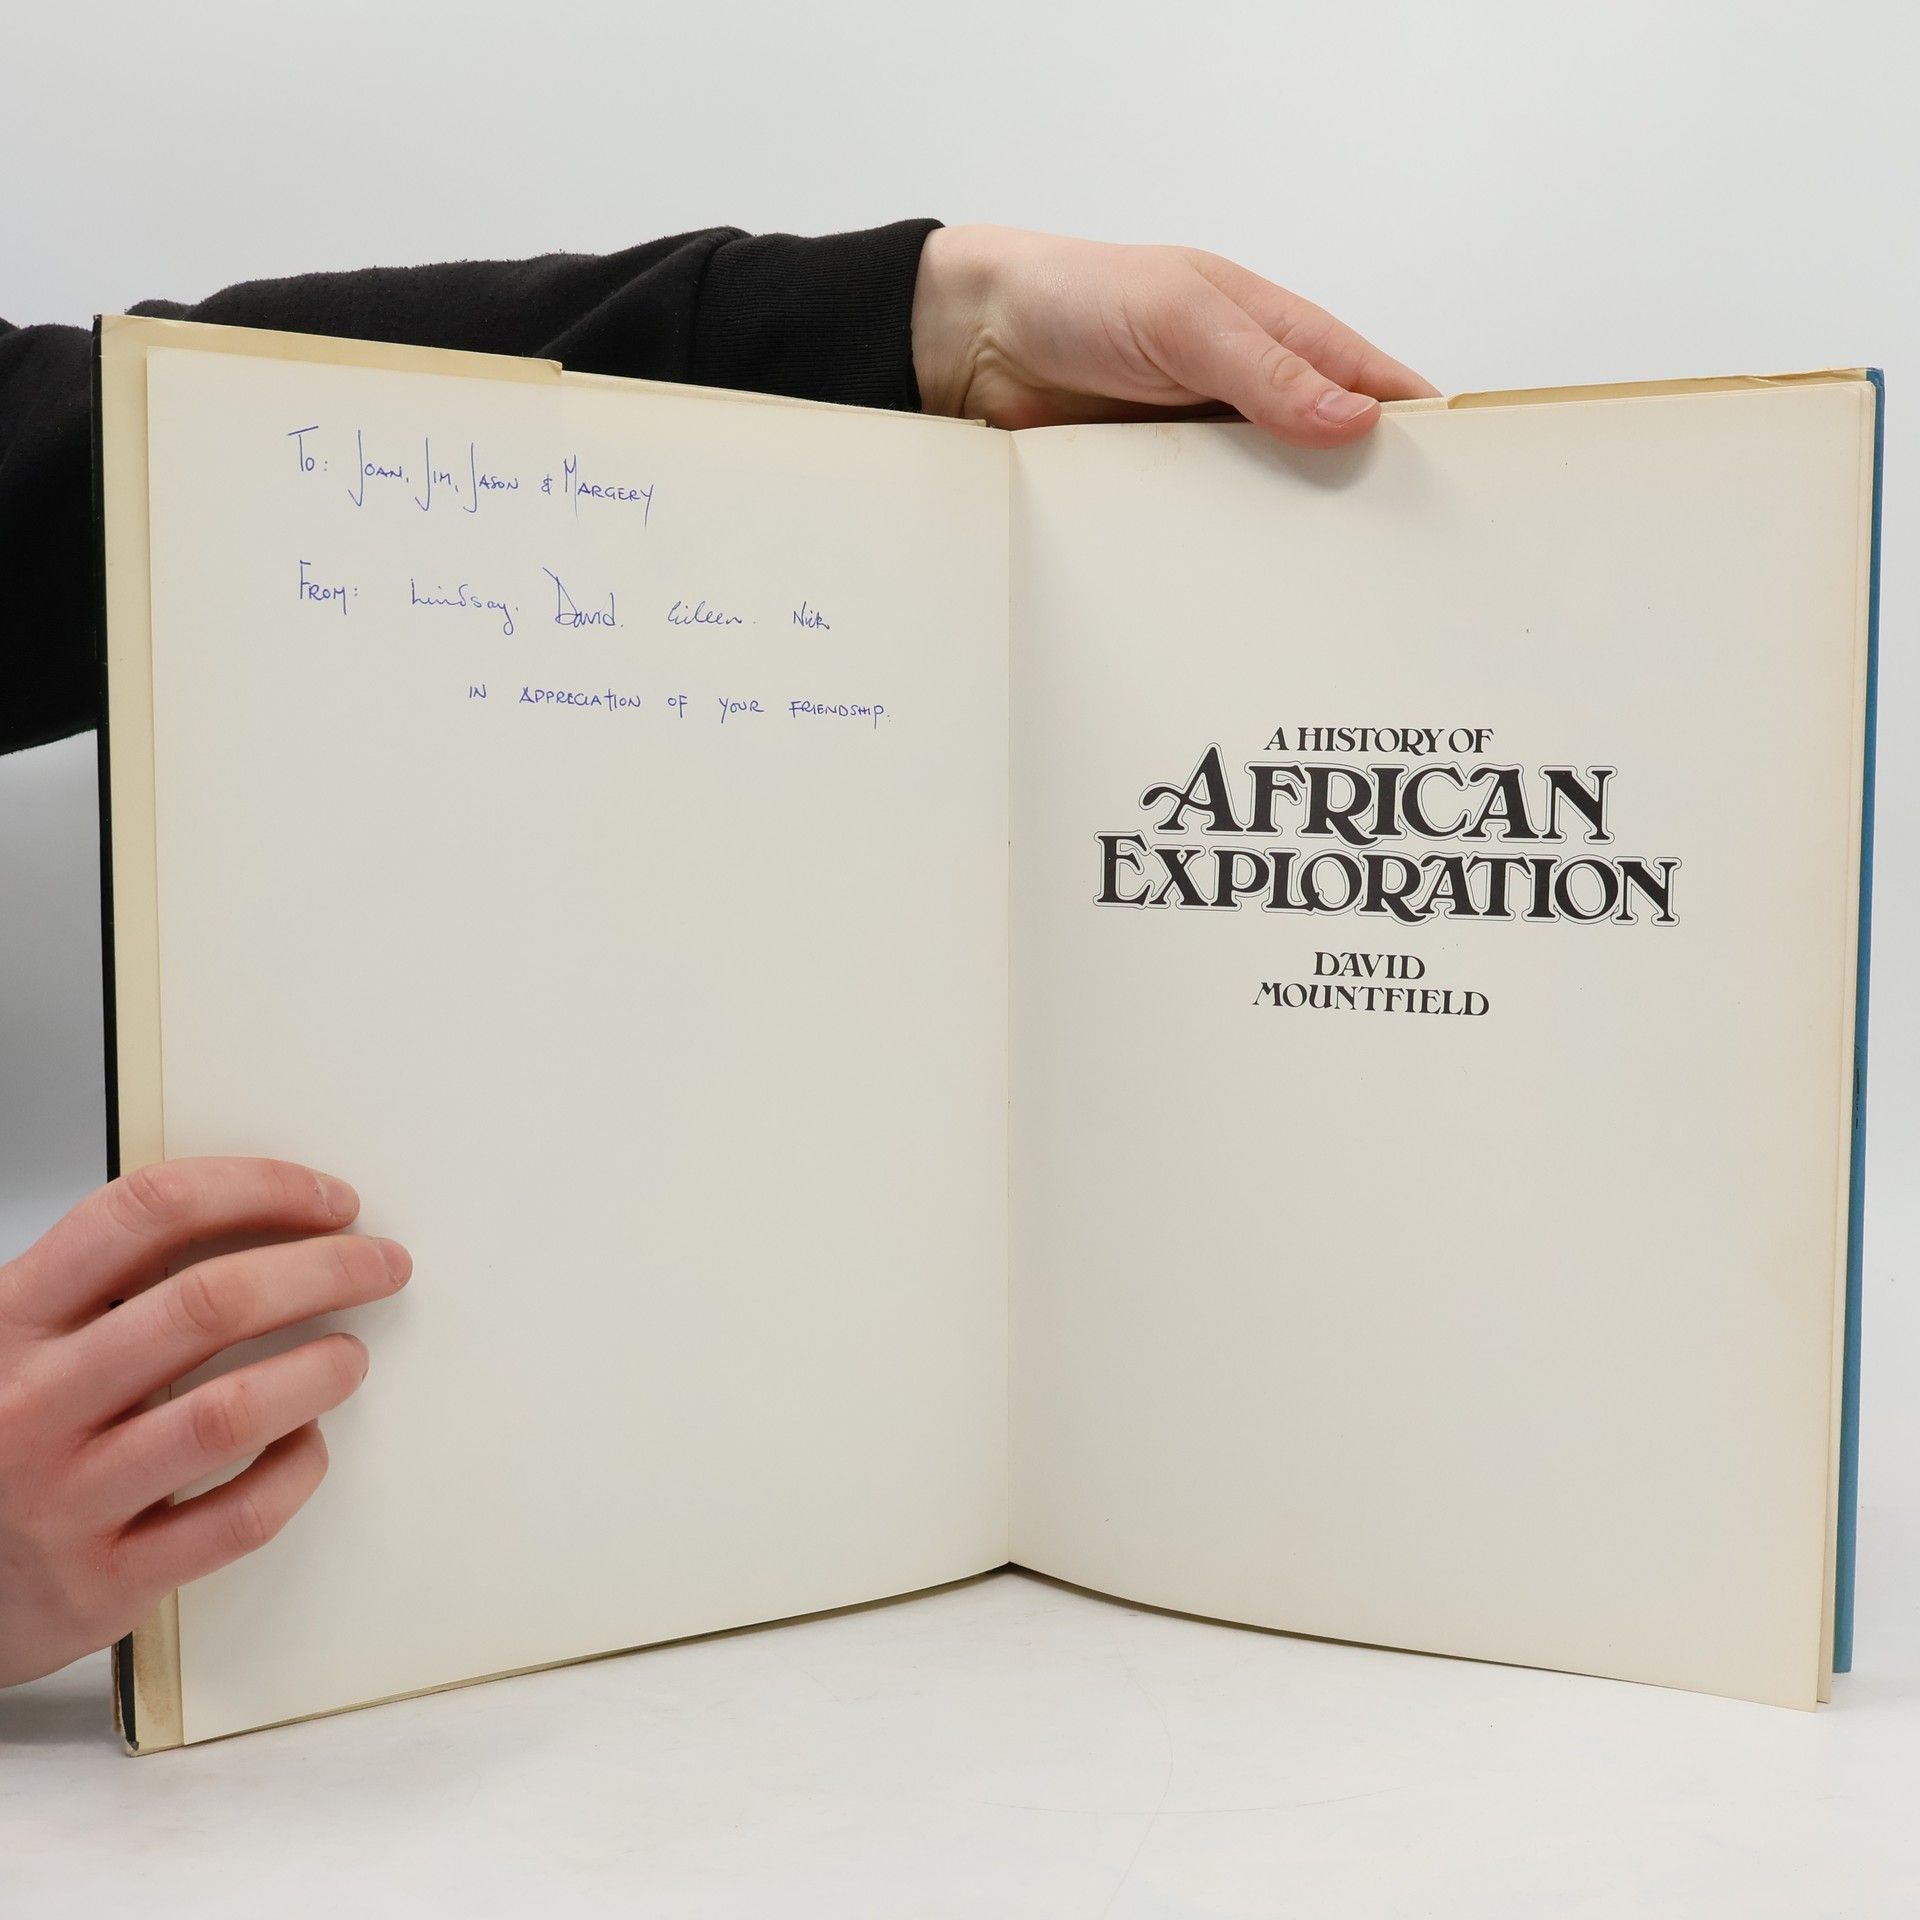 To: Joan, Jim, Jason & Margery
From: Lindsay. David. Eileen. Nick
in appreciation of your friendship.
A HISTORY OF
AFRICAN
EXPLORATION
DAVID
MOUNTFIELD